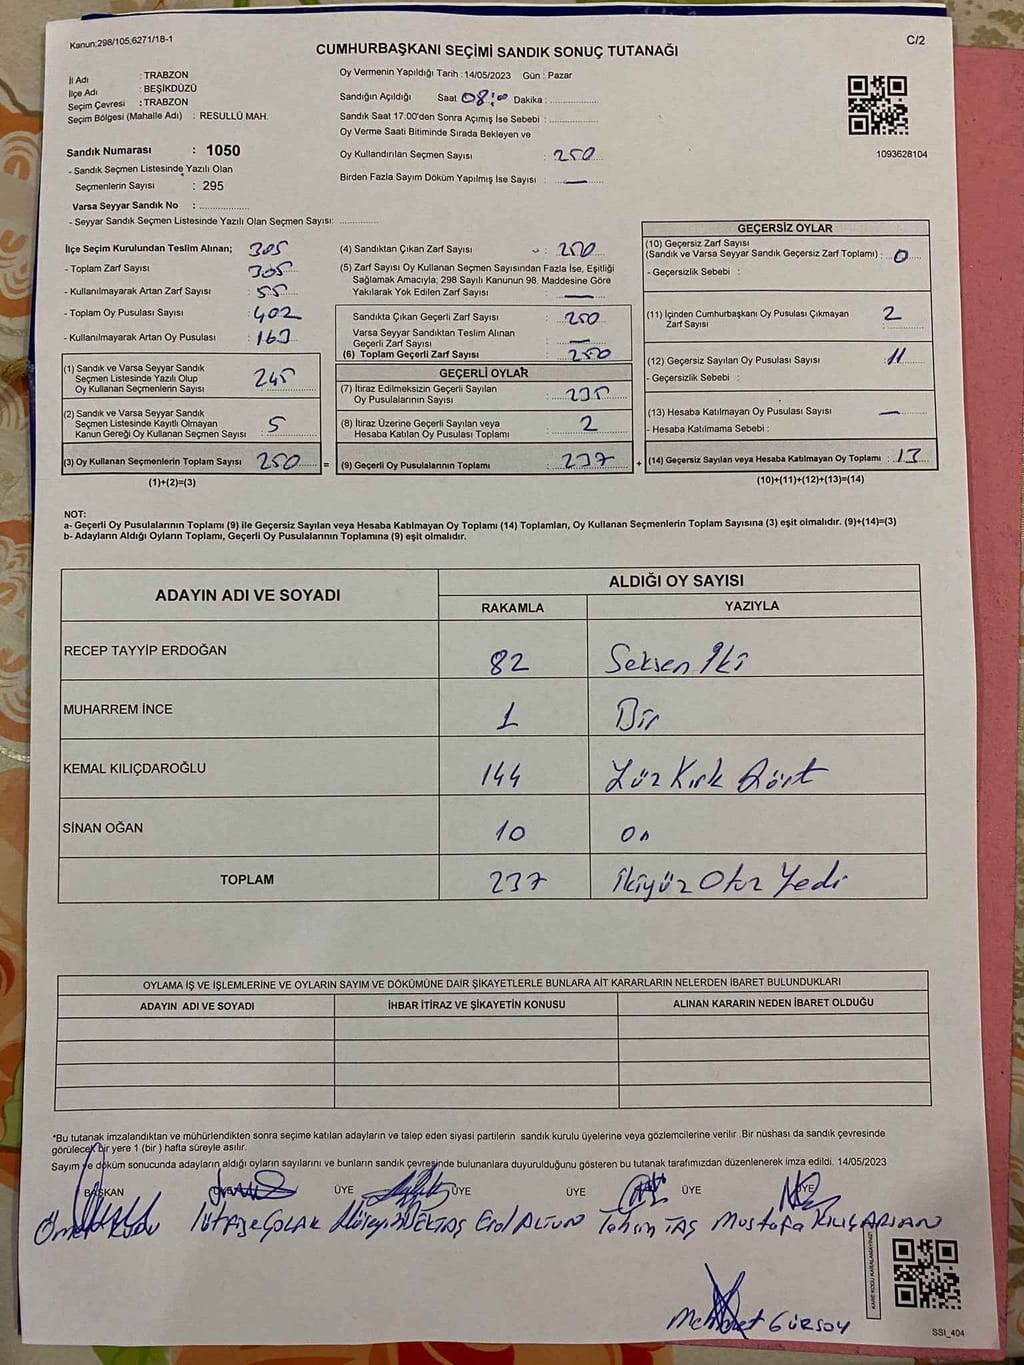 Kanun:298/105;6271/18-1
C/2
CUMHURBAŞKANI SEÇİMİ SANDIK SONUÇ TUTANAĞI
İl Adı : TRABZON
İlçe Adı : BEŞİKDÜZÜ
Seçim Çevresi : TRABZON
Seçim Bölgesi (Mahalle Adı) : RESULLÜ MAH.
Sandık Numarası : 1050
- Sandık Seçmen Listesinde Yazılı Olan
Seçmenlerin Sayısı : 295
Varsa Seyyar Sandık No :
- Seyyar Sandık Seçmen Listesinde Yazılı Olan Seçmen Sayısı:
Oy Vermenin Yapıldığı Tarih : 14/05/2023 Gün : Pazar
Sandığın Açıldığı Saat 08:00 Dakika :
Sandık Saat 17:00'den Sonra Açımış İse Sebebi :
Oy Verme Saati Bitiminde Sırada Bekleyen ve
Oy Kullandırılan Seçmen Sayısı : 250
Birden Fazla Sayım Döküm Yapılmış İse Sayısı : —
1093628104
İlçe Seçim Kurulundan Teslim Alınan; 305
- Toplam Zarf Sayısı : 305
- Kullanılmayarak Artan Zarf Sayısı : 55
- Toplam Oy Pusulası Sayısı : 402
- Kullanılmayarak Artan Oy Pusulası : 163
(1) Sandık ve Varsa Seyyar Sandık
Seçmen Listesinde Yazılı Olup
Oy Kullanan Seçmenlerin Sayısı : 245
(2) Sandık ve Varsa Seyyar Sandık
Seçmen Listesinde Kayıtlı Olmayan
Kanun Gereği Oy Kullanan Seçmen Sayısı : 5
(3) Oy Kullanan Seçmenlerin Toplam Sayısı : 250 =
(1)+(2)=(3)
(4) Sandıktan Çıkan Zarf Sayısı : 250
(5) Zarf Sayısı Oy Kullanan Seçmen Sayısından Fazla İse, Eşitliği
Sağlamak Amacıyla; 298 Sayılı Kanunun 98. Maddesine Göre
Yakılarak Yok Edilen Zarf Sayısı : —
Sandıkta Çıkan Geçerli Zarf Sayısı : 250
Varsa Seyyar Sandıktan Teslim Alınan
Geçerli Zarf Sayısı : —
(6) Toplam Geçerli Zarf Sayısı : 250
GEÇERLİ OYLAR
(7) İtiraz Edilmeksizin Geçerli Sayılan
Oy Pusulalarının Sayısı : 235
(8) İtiraz Üzerine Geçerli Sayılan veya
Hesaba Katılan Oy Pusulası Toplamı : 2
(9) Geçerli Oy Pusulalarının Toplamı : 237 +
GEÇERSİZ OYLAR
(10) Geçersiz Zarf Sayısı
(Sandık ve Varsa Seyyar Sandık Geçersiz Zarf Toplamı) : 0
- Geçersizlik Sebebi :
(11) İçinden Cumhurbaşkanı Oy Pusulası Çıkmayan
Zarf Sayısı : 2
(12) Geçersiz Sayılan Oy Pusulası Sayısı : 11
- Geçersizlik Sebebi :
(13) Hesaba Katılmayan Oy Pusulası Sayısı : —
- Hesaba Katılmama Sebebi :
(14) Geçersiz Sayılan veya Hesaba Katılmayan Oy Toplamı : 13
(10)+(11)+(12)+(13)=(14)
NOT:
a- Geçerli Oy Pusulalarının Toplamı (9) ile Geçersiz Sayılan veya Hesaba Katılmayan Oy Toplamı (14) Toplamları, Oy Kullanan Seçmenlerin Toplam Sayısına (3) eşit olmalıdır. (9)+(14)=(3)
b- Adayların Aldığı Oyların Toplamı, Geçerli Oy Pusulalarının Toplamına (9) eşit olmalıdır.
ADAYIN ADI VE SOYADI
ALDIĞI OY SAYISI
RAKAMLA YAZIYLA
RECEP TAYYİP ERDOĞAN 82 Seksen İki
MUHARREM İNCE 1 Bir
KEMAL KILIÇDAROĞLU 144 Yüz Kırk Dört
SİNAN OĞAN 10 On
TOPLAM 237 İkiyüz Otuz Yedi
OYLAMA İŞ VE İŞLEMLERİNE VE OYLARIN SAYIM VE DÖKÜMÜNE DAİR ŞİKAYETLERLE BUNLARA AİT KARARLARIN NELERDEN İBARET BULUNDUKLARI
ADAYIN ADI VE SOYADI İHBAR İTİRAZ VE ŞİKAYETİN KONUSU ALINAN KARARIN NEDEN İBARET OLDUĞU
*Bu tutanak imzalandıktan ve mühürlendikten sonra seçime katılan adayların ve talep eden siyasi partilerin sandık kurulu üyelerine veya gözlemcilerine verilir .Bir nüshası da sandık çevresinde
görülecek bir yere 1 (bir ) hafta süreyle asılır.
Sayım ve döküm sonucunda adayların aldığı oyların sayılarını ve bunların sandık çevresinde bulunanlara duyurulduğunu gösteren bu tutanak tarafımızdan düzenlenerek imza edildi. 14/05/2023
BAŞKAN ÜYE ÜYE ÜYE ÜYE ÜYE ÜYE
Erol ALTUN Tahsin TAŞ Mustafa KILIÇARSLAN
Mehmet GÜRSOY
KARE KODU KARALAMAYINIZ!
SSI_404